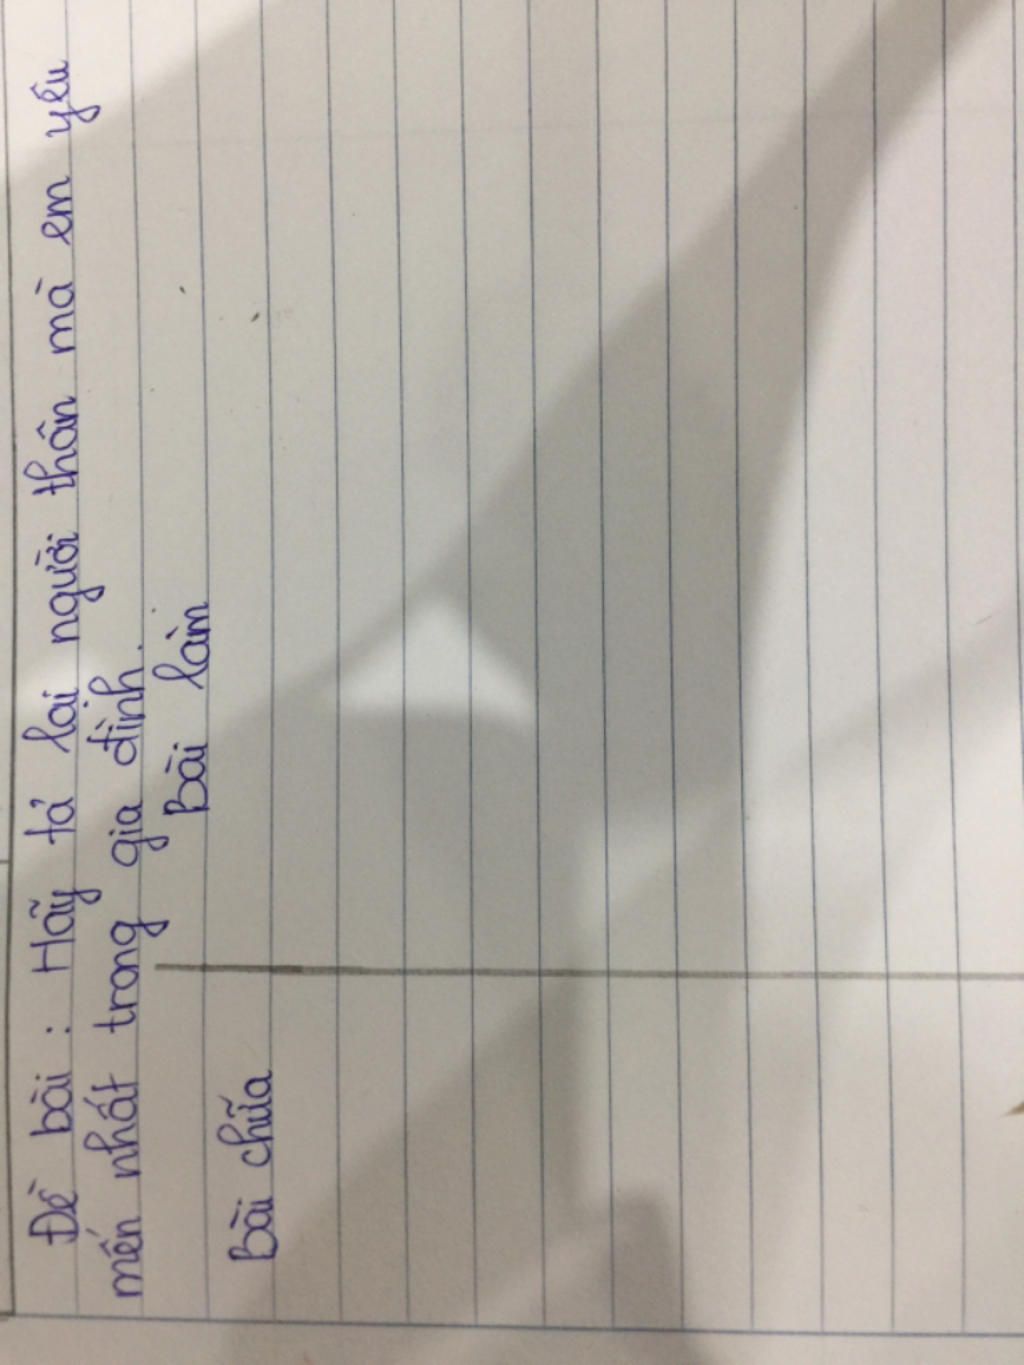 Đề bài : Hãy tả lại người thân mà em yêu
mến nhất trong gia đình.
Bài làm
Bài chữa